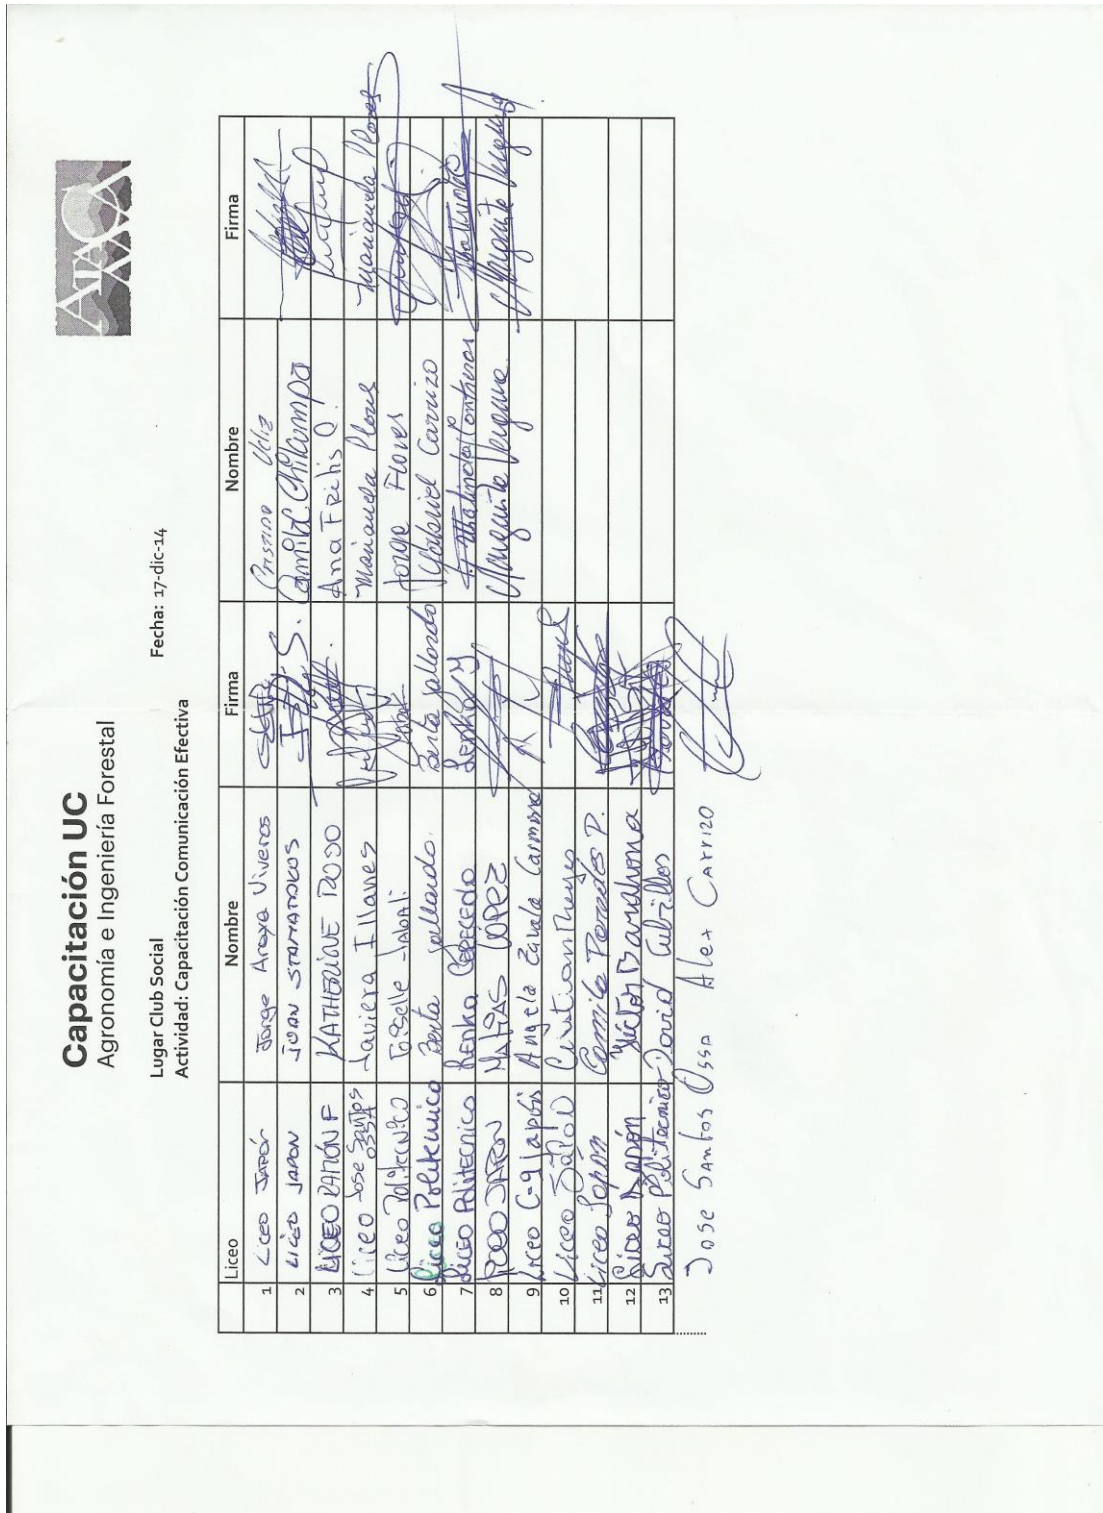 ATACAMA
Capacitación UC
Agronomía e Ingeniería Forestal
Lugar Club Social Fecha: 17-dic-14
Actividad: Capacitación Comunicación Efectiva
Liceo Nombre Firma Nombre Firma
1 Liceo Japón Jorge Araya Viveros Cristina Veliz
2 Liceo JAPON JUAN Camila Chilumpa
3 LICEO RAMÓN F KATHERINE ROJO Ana Fritis O.
4 Liceo Jose Santos OSSA Javiera Illanes Marianela Flores Marianela Flores
5 Liceo Politecnico Jorge Flores
6 Liceo Politecnico Berta Gallardo. Berta Gallardo Gabriel Carrizo
7 Liceo Politecnico Renka Cereceda Renka Contreras
8 LICEO JAPON MATÍAS LOPEZ Margarita Vergara Margarita Vergara
9 Liceo C-9 Japón Angela Zavala Carmona
10 Liceo Japón Cristian Reyes
11 Liceo Japón Camila Paredes P.
12 Liceo Japón Héctor Barahona
13 Liceo Politecnico David Cubillos
Jose Santos Ossa Alex Carrizo